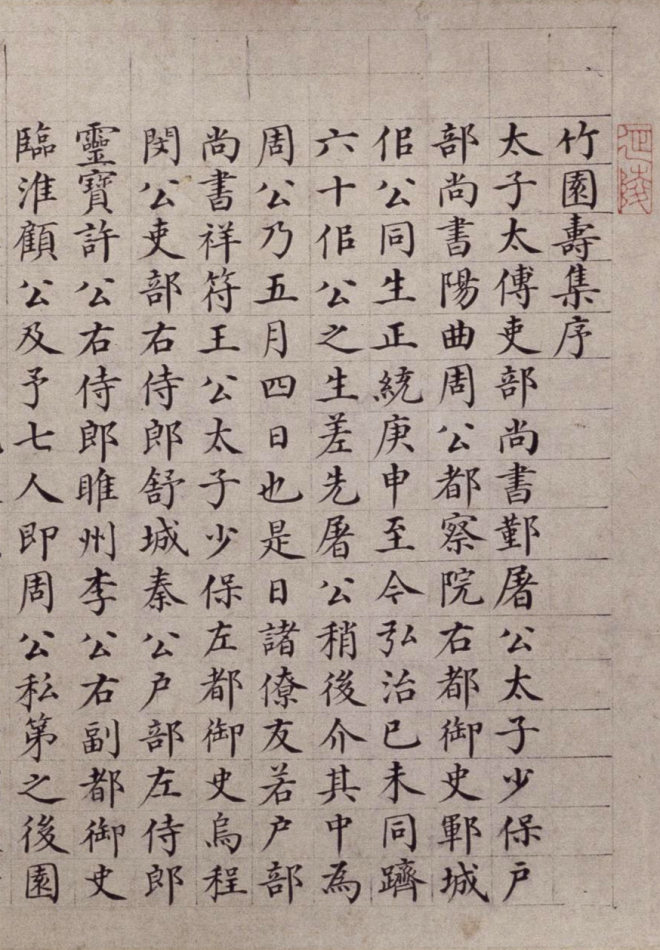 竹園壽集序
太子太傅吏部尚書鄞屠公太子少保户
部尚書陽曲周公都察院右都御史鄆城
佀公同生正統庚申至今弘治己未同躋
六十佀公之生差先屠公稍後介其中為
周公乃五月四日也是日諸僚友若户部
尚書祥符王公太子少保左都御史烏程
閔公吏部右侍郎舒城秦公户部左侍郎
靈寶許公右侍郎睢州李公右副都御史
臨淮顧公及予七人即周公私第之後園